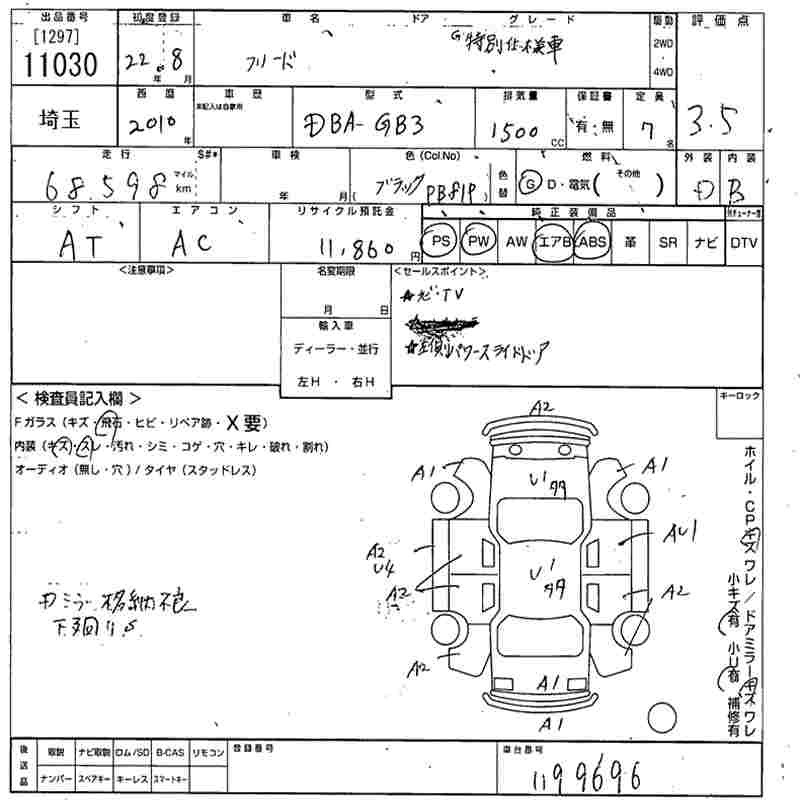 出品番号 初度登録 車名 ドア グレード 駆動 評価点
[1297]
11030 22.8 年 月 フリード G特別仕様車 2WD 4WD
西暦 車歴 型式 排気量 保証書 定員
未記入は自家用
埼玉 2010年 DBA-GB3 1500 CC 有・無 7名 3.5
走行 S#* 車検 色(Col.No) 燃料 外装 内装
68,598 マイル km 年 月 ブラック PB81P 色替 G D・電気( その他 ) D B
シフト エアコン リサイクル預託金 純正装備品
AT AC 11,860円 PS PW AW エアB ABS 革 SR ナビ DTV
<注意事項> 名変期限 <セールスポイント>
月 日 ☆ナビ・TV
輸入車
ディーラー・並行 ☆左側パワースライドドア
左H・右H
<検査員記入欄> キーロック
Fガラス(キズ・飛石・ヒビ・リペア跡・X要)
内装(キズ・スレ・汚れ・シミ・コゲ・穴・キレ・破れ・割れ)
オーディオ(無し・穴)/タイヤ(スタッドレス)
A2
A1 U1 タタ A1
A2 U4 AU1
A2 U1 タタ A2
A2 A1
A1
ホイル・CPキズワレ/ドアミラーキズワレ
小キズ有 小U有 補修有
ミラー格納不良
下回りS
後送品 取説 ナビ取説 ロム/SD B-CAS リモコン 登録番号 車台番号
ナンバー スペアキー キーレス スマートキー 1199696